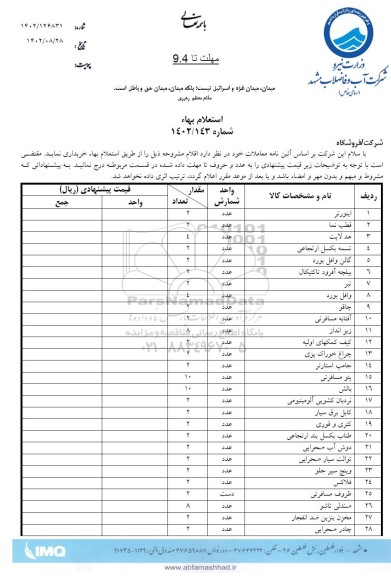 باسمه تعالی
شماره: ۱۴۰۲/۱۲۴۸۳۱
تاریخ: ۱۴۰۲/۰۸/۲۸
پیوست:
مهلت تا 9.4
وزارت نیرو
شرکت آب و فاضلاب مشهد
(سهامی خاص)
میدان، میدان غزه و اسرائیل نیست؛ بلکه میدان، میدان حق و باطل است.
مقام معظم رهبری
استعلام بهاء
شماره ۱۴۰۲/۱۴۳
شرکت/فروشگاه
با سلام این شرکت بر اساس آئین نامه معاملات خود در نظر دارد اقلام مشروحه ذیل را از طریق استعلام بهاء خریداری نماید. مقتضی
است با توجه به توضیحات زیر قیمت پیشنهادی را به عدد و حروف تا مهلت داده شده در قسمت مربوطه درج نمائید. به پیشنهاداتی که
مشروط و مبهم و بدون مهر و امضاء باشد و یا بعد از موعد مقرر اعلام گردد، ترتیب اثری داده نخواهد شد.
ردیف نام و مشخصات کالا واحد شمارش مقدار تعداد قیمت پیشنهادی (ریال) واحد جمع
۱ اینورتر عدد ۲
۲ قطب نما عدد ۲
۳ هد لایت عدد ۴
۴ تسمه بکسل ارتجاعی عدد ۲
۵ گالن وافل بورد عدد ۲
۶ بیلچه آفرود تاکتیکال عدد ۲
۷ تبر عدد ۲
۸ وافل بورد عدد ۴
۹ چاقو عدد ۲
۱۰ آفتابه مسافرتی عدد ۲
۱۱ زیر انداز عدد ۸
۱۲ کیف کمکهای اولیه عدد ۲
۱۳ چراغ خوراک پزی عدد ۲
۱۴ جامپ استارتر عدد ۲
۱۵ پتو مسافرتی عدد ۱۰
۱۶ بالش عدد ۱۰
۱۷ نردبان کشویی آلومینیومی عدد ۲
۱۸ کابل برق سیار عدد ۲
۱۹ کتری و قوری عدد ۲
۲۰ طناب بکسل بند ارتجاعی عدد ۲
۲۱ دوش آب صحرایی عدد ۲
۲۲ توالت سیار صحرایی عدد ۲
۲۳ وینچ سپر جلو عدد ۲
۲۴ فلاکس عدد ۲
۲۵ ظروف مسافرتی دست ۲
۲۶ صندلی تاشو عدد ۸
۲۷ مخزن بنزین ضد انفجار عدد ۲
۲۸ چادر صحرایی عدد ۲
ParsNamadData
۰۲۱-۸۸۳۴۹۶۷۰-۵
IMQ
www.abfamashhad.ir